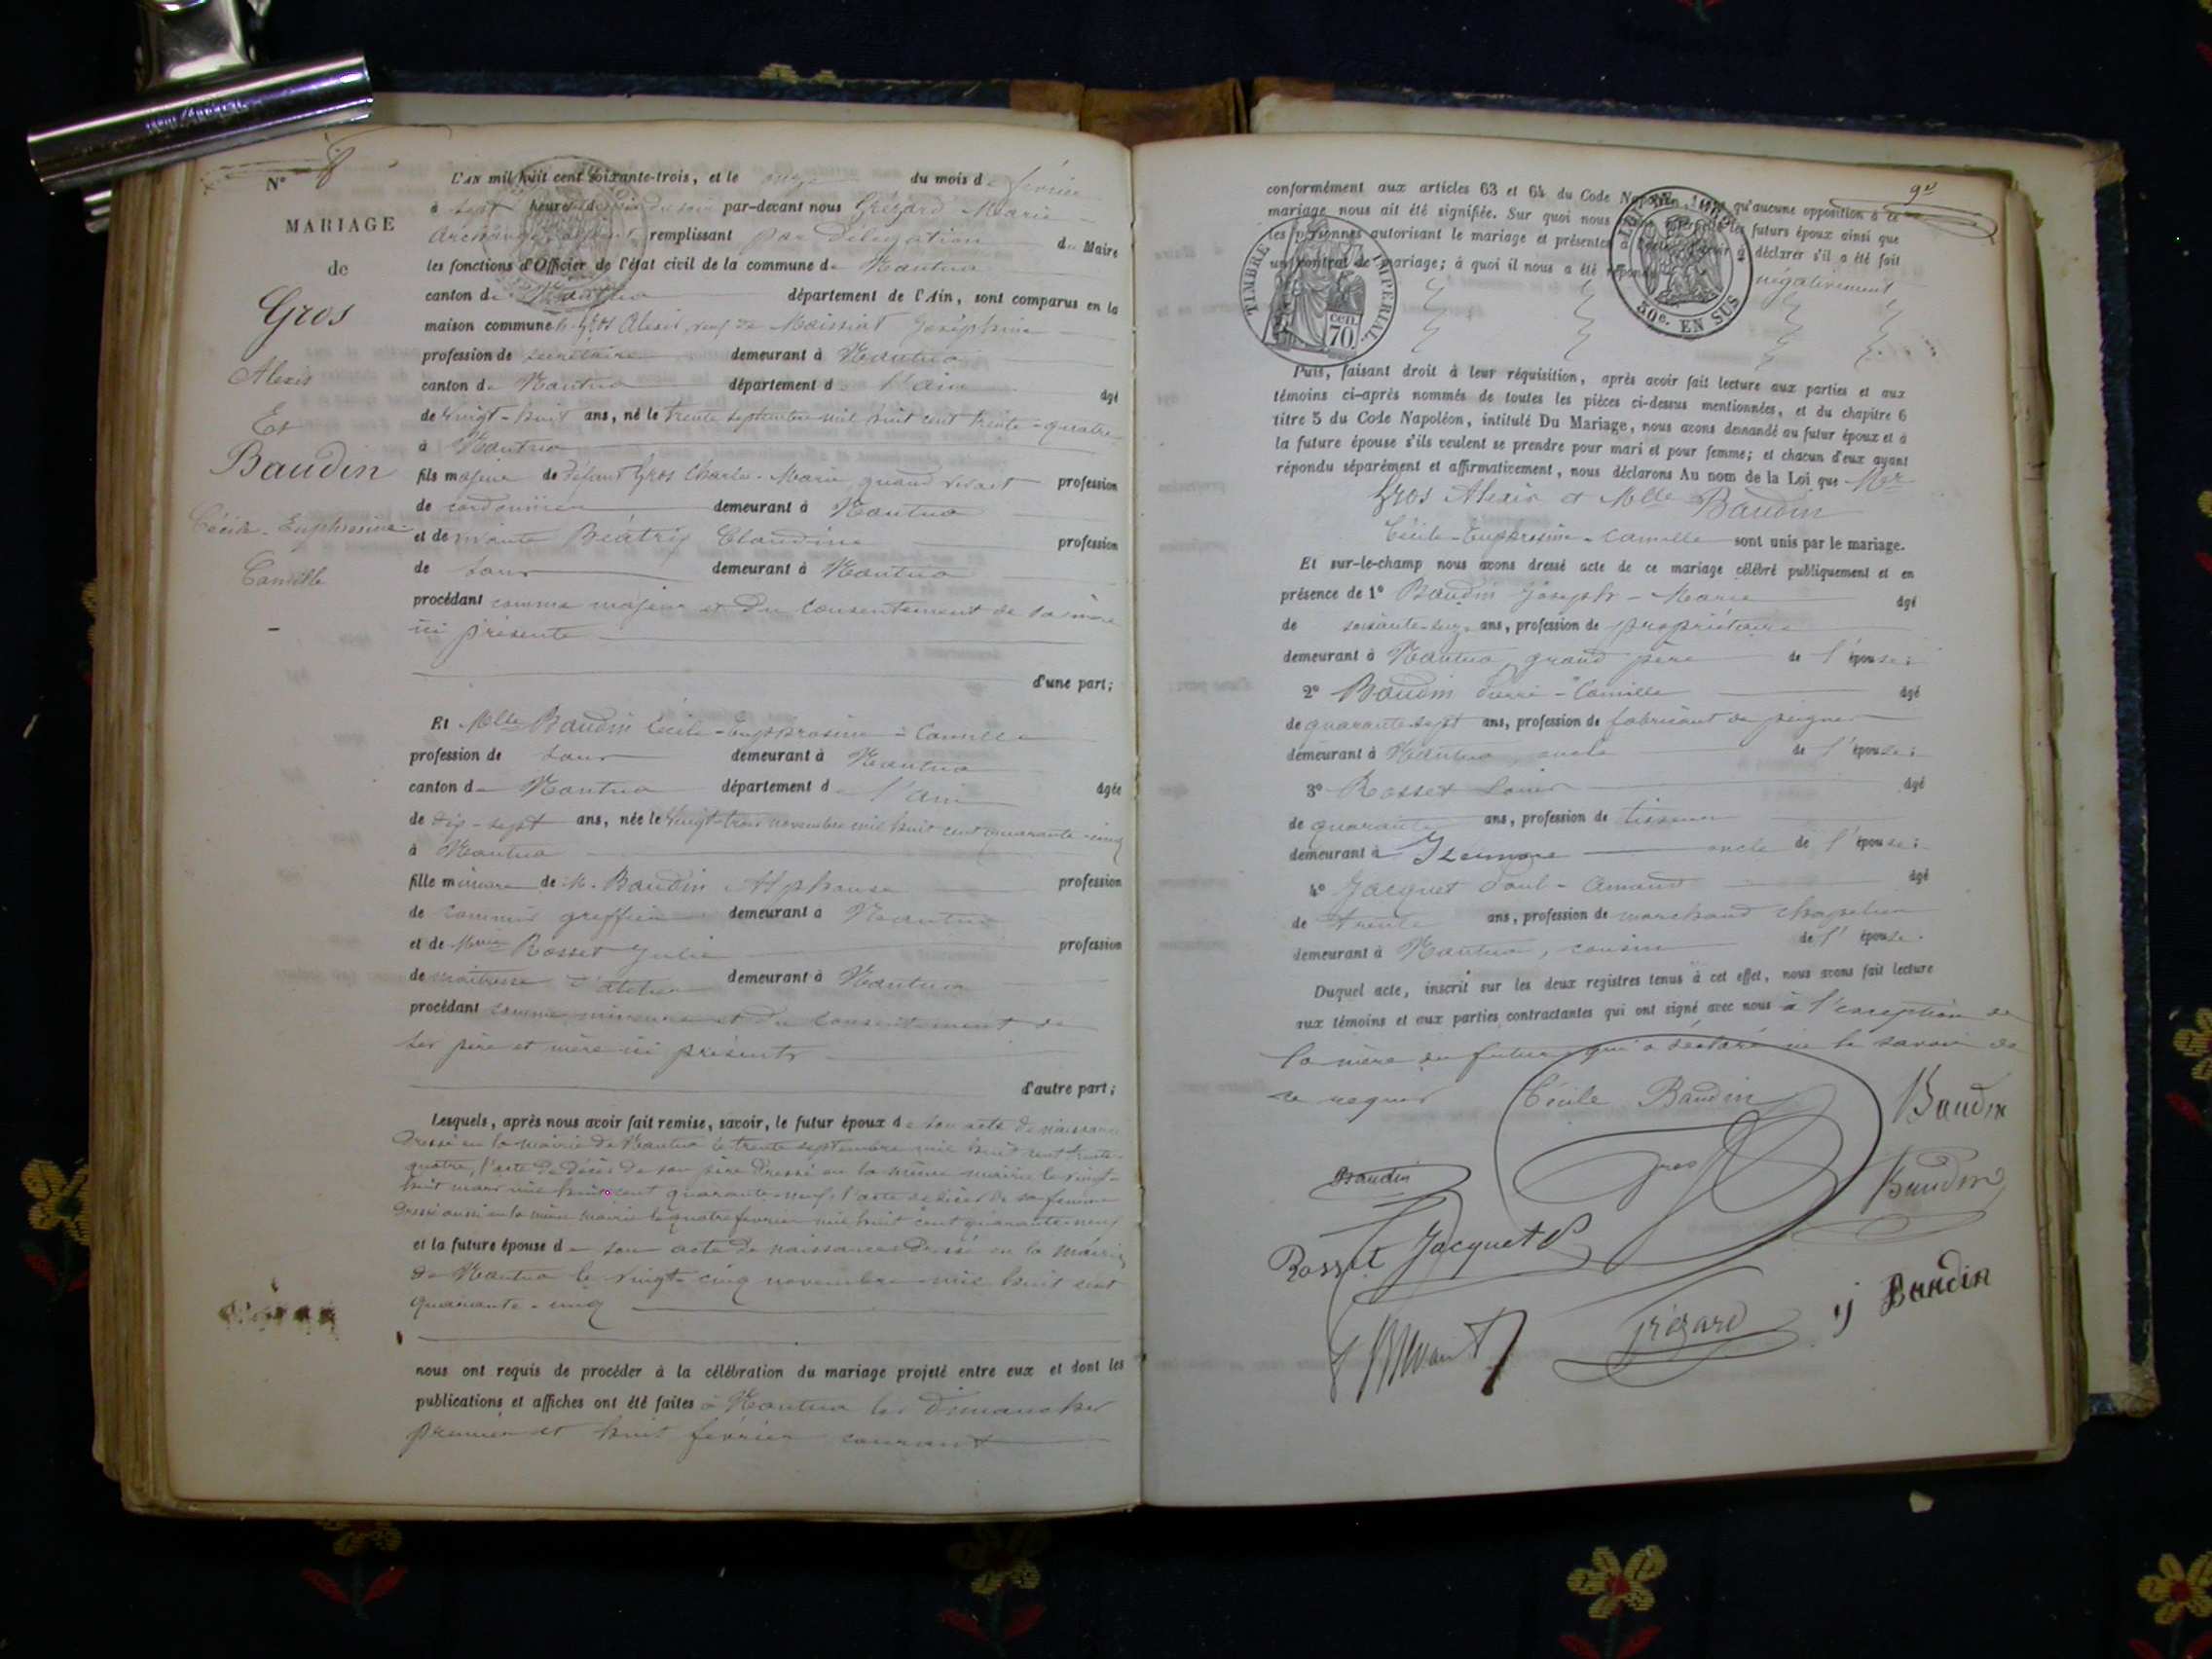 N° 8
MARIAGE
de
Gros
Alexis
Et
Baudin
Cécile-Euphrosine-
Camille
L'AN mil huit cent soixante-trois, et le onze du mois de février
à sept heures du soir par-devant nous Grézard Marie
Archange, adjoint remplissant par délégation du Maire
les fonctions d'Officier de l'état civil de la commune de Nantua
canton de Nantua département de l'Ain, sont comparus en la
maison commune M. Gros Alexis, veuf de Maissiat Joséphine
profession de secrétaire demeurant à Nantua
canton de Nantua département de l'Ain âgé
de vingt-huit ans, né le trente septembre mil huit cent trente-quatre
à Nantua
fils majeur de défunt Gros Charles-Marie, quand vivait profession
de cordonnier demeurant à Nantua
et de vivante Béatrix Claudine profession
de sans demeurant à Nantua
procédant comme majeur et du consentement de sa mère
ici présente
d'une part;
Et Mlle Baudin Cécile-Euphrosine-Camille
profession de sans demeurant à Nantua
canton de Nantua département de l'Ain âgée
de dix-sept ans, née le vingt-trois novembre mil huit cent quarante-cinq
à Nantua
fille mineure de M. Baudin Alphonse profession
de commis greffier demeurant à Nantua
et de Rosset Julie profession
de maîtresse d'atelier demeurant à Nantua
procédant comme mineure et du consentement de
ses père et mère ici présents
d'autre part;
Lesquels, après nous avoir fait remise, savoir, le futur époux de son acte de naissance
dressé en la mairie de Nantua le trente septembre mil huit cent trente-
quatre, l'acte de décès de son père dressé en la même mairie le vingt-
huit mars mil huit cent quarante-neuf, l'acte de décès de sa femme
dressé aussi en la même mairie le quatre février mil huit cent
et la future épouse de son acte de naissance dressé en la mairie
de Nantua le vingt-cinq novembre mil huit cent
quarante-cinq
nous ont requis de procéder à la célébration du mariage projeté entre eux et dont les
publications et affiches ont été faites à Nantua les dimanches
premier et huit février courant
9
conformément aux articles 63 et 64 du Code Napoléon, sans qu'aucune opposition à ce
mariage nous ait été signifiée. Sur quoi nous avons interpellé les futurs époux ainsi que
les personnes autorisant le mariage et présentes à l'acte, d'avoir à déclarer s'il a été fait
un contrat de mariage; à quoi il nous a été répondu négativement
TIMBRE IMPERIAL
70 cen.
30e. EN SUS
Puis, faisant droit à leur réquisition, après avoir fait lecture aux parties et aux
témoins ci-après nommés de toutes les pièces ci-dessus mentionnées, et du chapitre 6
titre 5 du Code Napoléon, intitulé Du Mariage, nous avons demandé au futur époux et à
la future épouse s'ils veulent se prendre pour mari et pour femme; et chacun d'eux ayant
répondu séparément et affirmativement, nous déclarons Au nom de la Loi que Mr
Gros Alexis et Mlle Baudin
Cécile-Euphrosine-Camille sont unis par le mariage.
Et sur-le-champ nous avons dressé acte de ce mariage célébré publiquement et en
présence de 1° Baudin Joseph-Marie âgé
de ans, profession de propriétaire
demeurant à Nantua, grand père de l'épouse;
2° Baudin Pierre-Camille âgé
de quarante-sept ans, profession de fabricant de peignes
demeurant à Nantua, oncle de l'épouse;
3° Rosset Louis âgé
de quarante ans, profession de tisseur
demeurant à Izernore oncle de l'épouse;
4° Jacquet Paul-Amand âgé
de trente ans, profession de marchand chapelier
demeurant à Nantua, cousin de l'épouse.
Duquel acte, inscrit sur les deux registres tenus à cet effet, nous avons fait lecture
aux témoins et aux parties contractantes qui ont signé avec nous à l'exception de
la mère du futur qui a déclaré ne le savoir de
ce requis
Cécile Baudin
Baudin
Baudin
Gros
Baudin
Rosset Jacquet P
Grézard
J Baudin